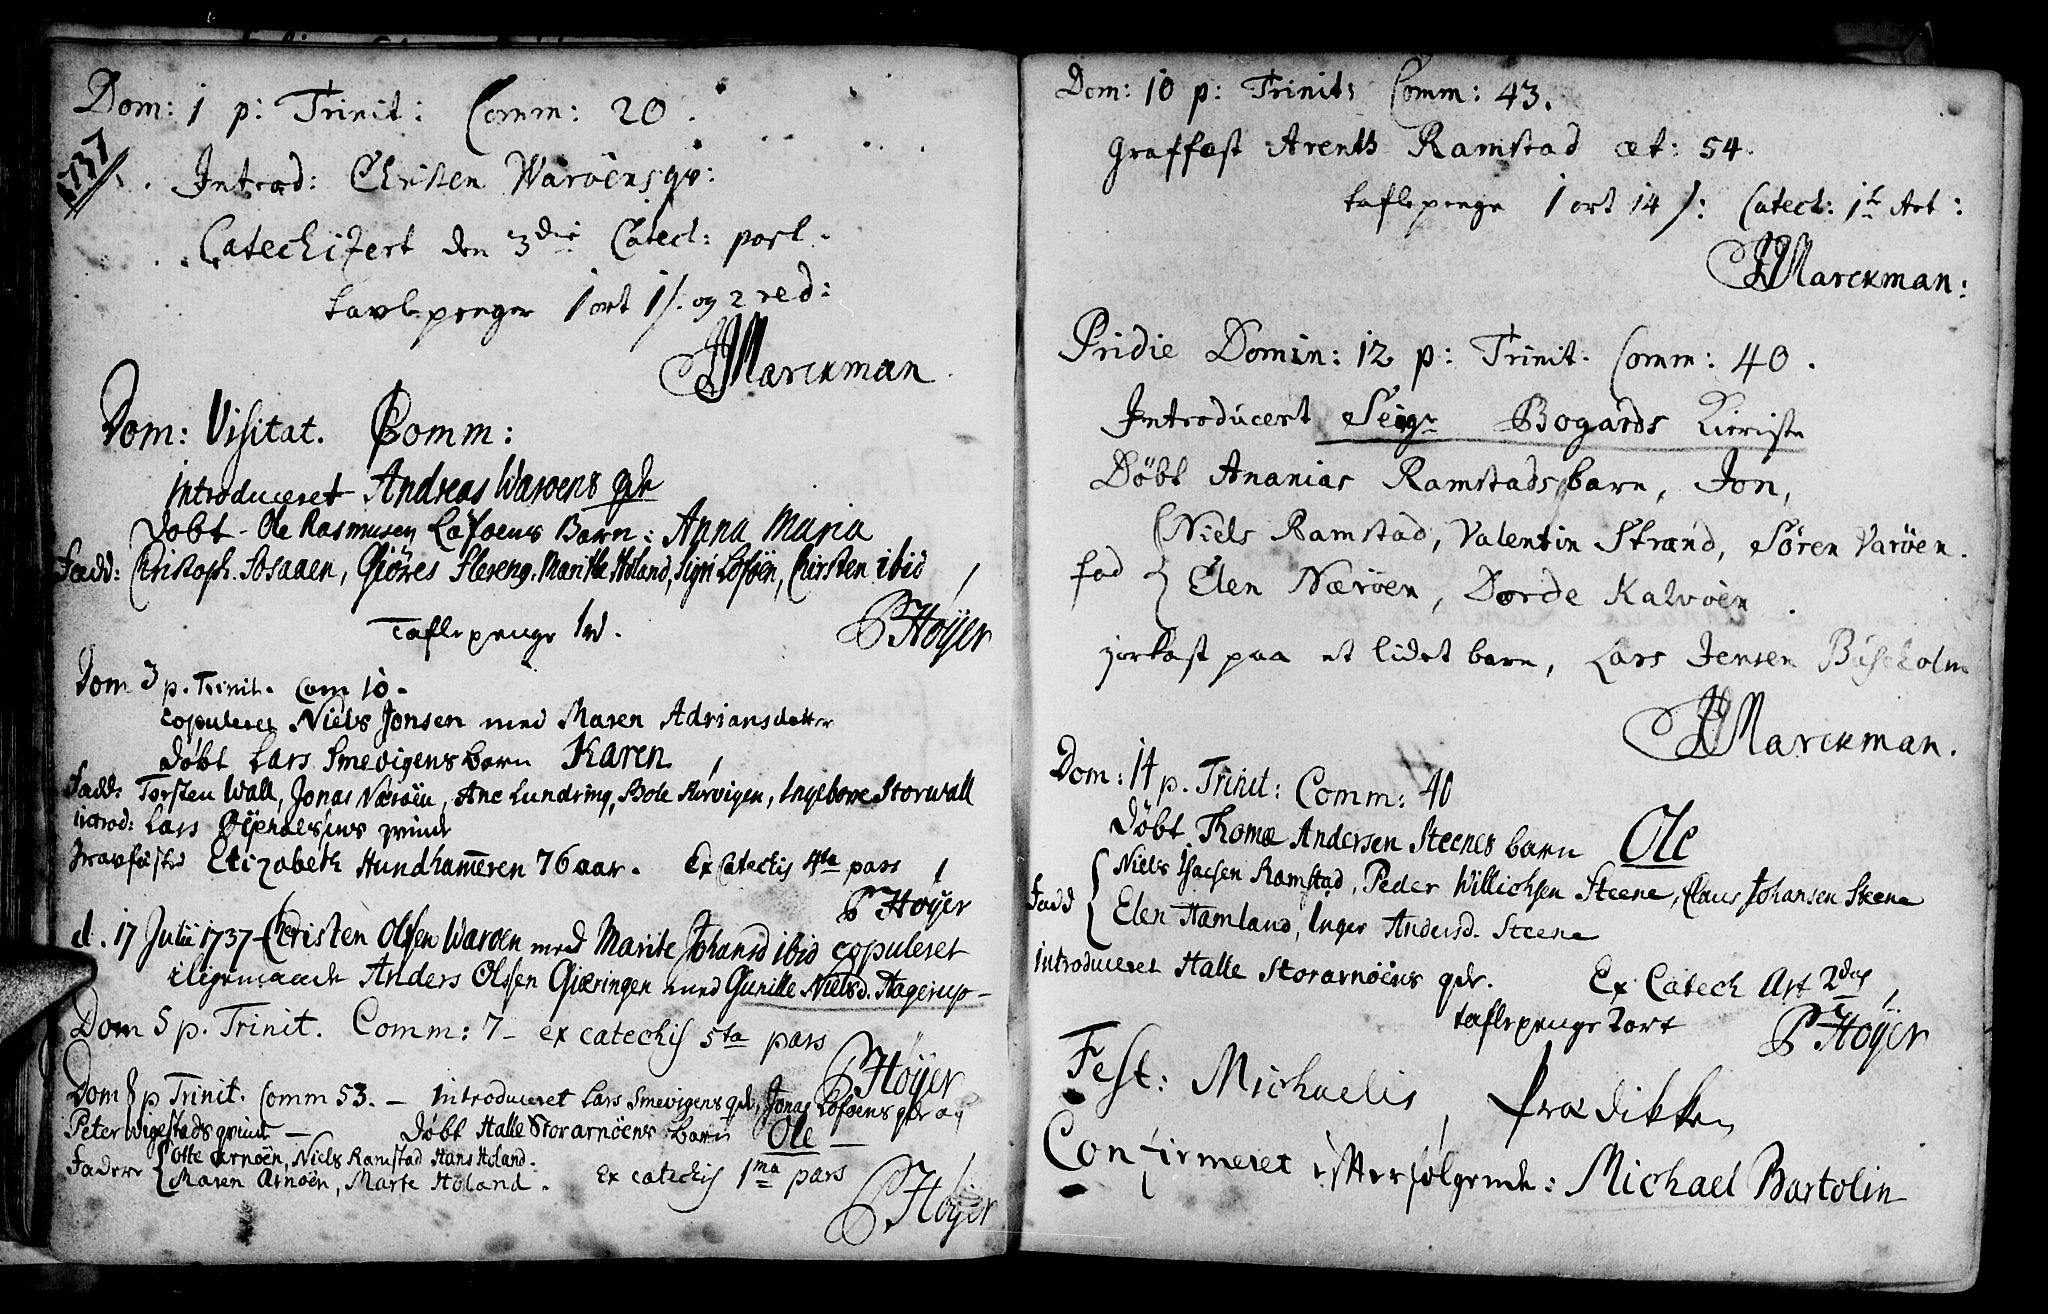 Dom: 1 p: Trinit: Comm: 20.
1737
Introd: Christen Waröens qv:
Catechizert den 3die Catech: part.
tavlepenger 1 ort 1 s. og 2 red:
HMarckman.
Dom: Visitat. Comm:
introduceret Andreas Waroens qdr
Døbt Ole Rasmusen Lofoens Barn: Anna Maria
Fadd: Christoph. Giøres Flereng. Marithe Høland, Sigri Loföen, Chirsten ibid
Taflepenge
PHöyer
Dom 3 p. Trinit. Com 10.
copuleret Niels Jonsen med Maren Adriansdatter
døbt Lars Smevigens barn Karen
Fadd: Torsten Wall, Jonas Næröen, Ane Lundring, Bole Rörvigen, Ingebore Storwall
introd: Lars qvinde
Elizabeth Hundhammeren 76 aar. Ex Catechis 4ta pars
PHöyer
d. 17 Julii 1737 Christen Olsen Waroen med Marite Johansd ibid copuleret
iligemaade Anders Olssen Giæringen med Gunille Nielsd. Hagerup
Dom 5 p. Trinit. Comm: 7 - ex catechis 5ta pars
PHöyer
Dom 8 p Trinit. Comm 53. - Introduceret Lars Smevigens qdr, Jonas Lofoens qdr og
Peter Wigestads qvinde - Døbt Halle Storarnöens barn Ole -
Faddere Otte Arnöen, Niels Ramstad Hans Holand.
Maren Arnöen, Marte Höland. Ex catechis 1ma pars
PHöyer
Dom: 10 p: Trinit: Comm: 43.
Graffæst Arenth Ramstad æt: 54.
taflepenge 1 ort 14 s: Catech: 1st Art:
HMarckman:
Pridie Domin: 12 p: Trinit. Comm: 40.
Introducert Seigr Bogards Kieriste
Døbt Ananias Ramstads barn, Jon,
fad Niels Ramstad, Valentin Strand, Søren Varöen.
Elen Næröen, Dorde Kalvöen.
jorkast paa et lidet barn, Lars Jensen Busholm
HMarckman.
Dom: 14 p. Trinit: Comm: 40
Døbt Thomæ Andersen Steenes barn Ole
Fadd Niels Isacsen Ramstad, Peder Willichsen Steene, Claus Johansen Steene
Elen Hamland, Inger Andersd. Steene
Introduceret Halle Storarnöens qdr. Ex Catech Art 2dus
taflepenge 2 ort PHöyer
Fest: Michaelis, Prædikken
Confirmeret efterfølgende: Michael Bartolin